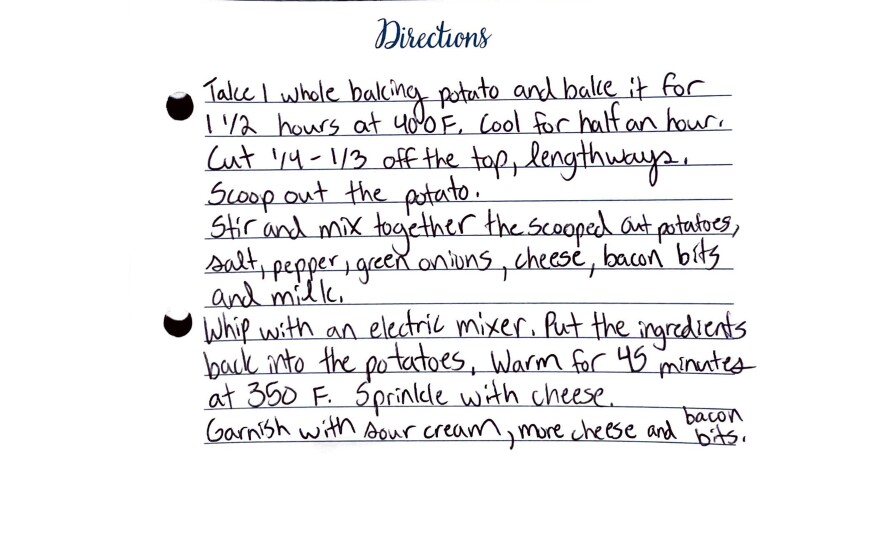 Directions
Take 1 whole baking potato and bake it for
1 1/2 hours at 400F. Cool for half an hour.
Cut 1/4 - 1/3 off the top, lengthways.
Scoop out the potato.
Stir and mix together the scooped out potatoes,
salt, pepper, green onions, cheese, bacon bits
and milk.
Whip with an electric mixer. Put the ingredients
back into the potatoes. Warm for 45 minutes
at 350 F. Sprinkle with cheese.
Garnish with sour cream, more cheese and bacon
bits.